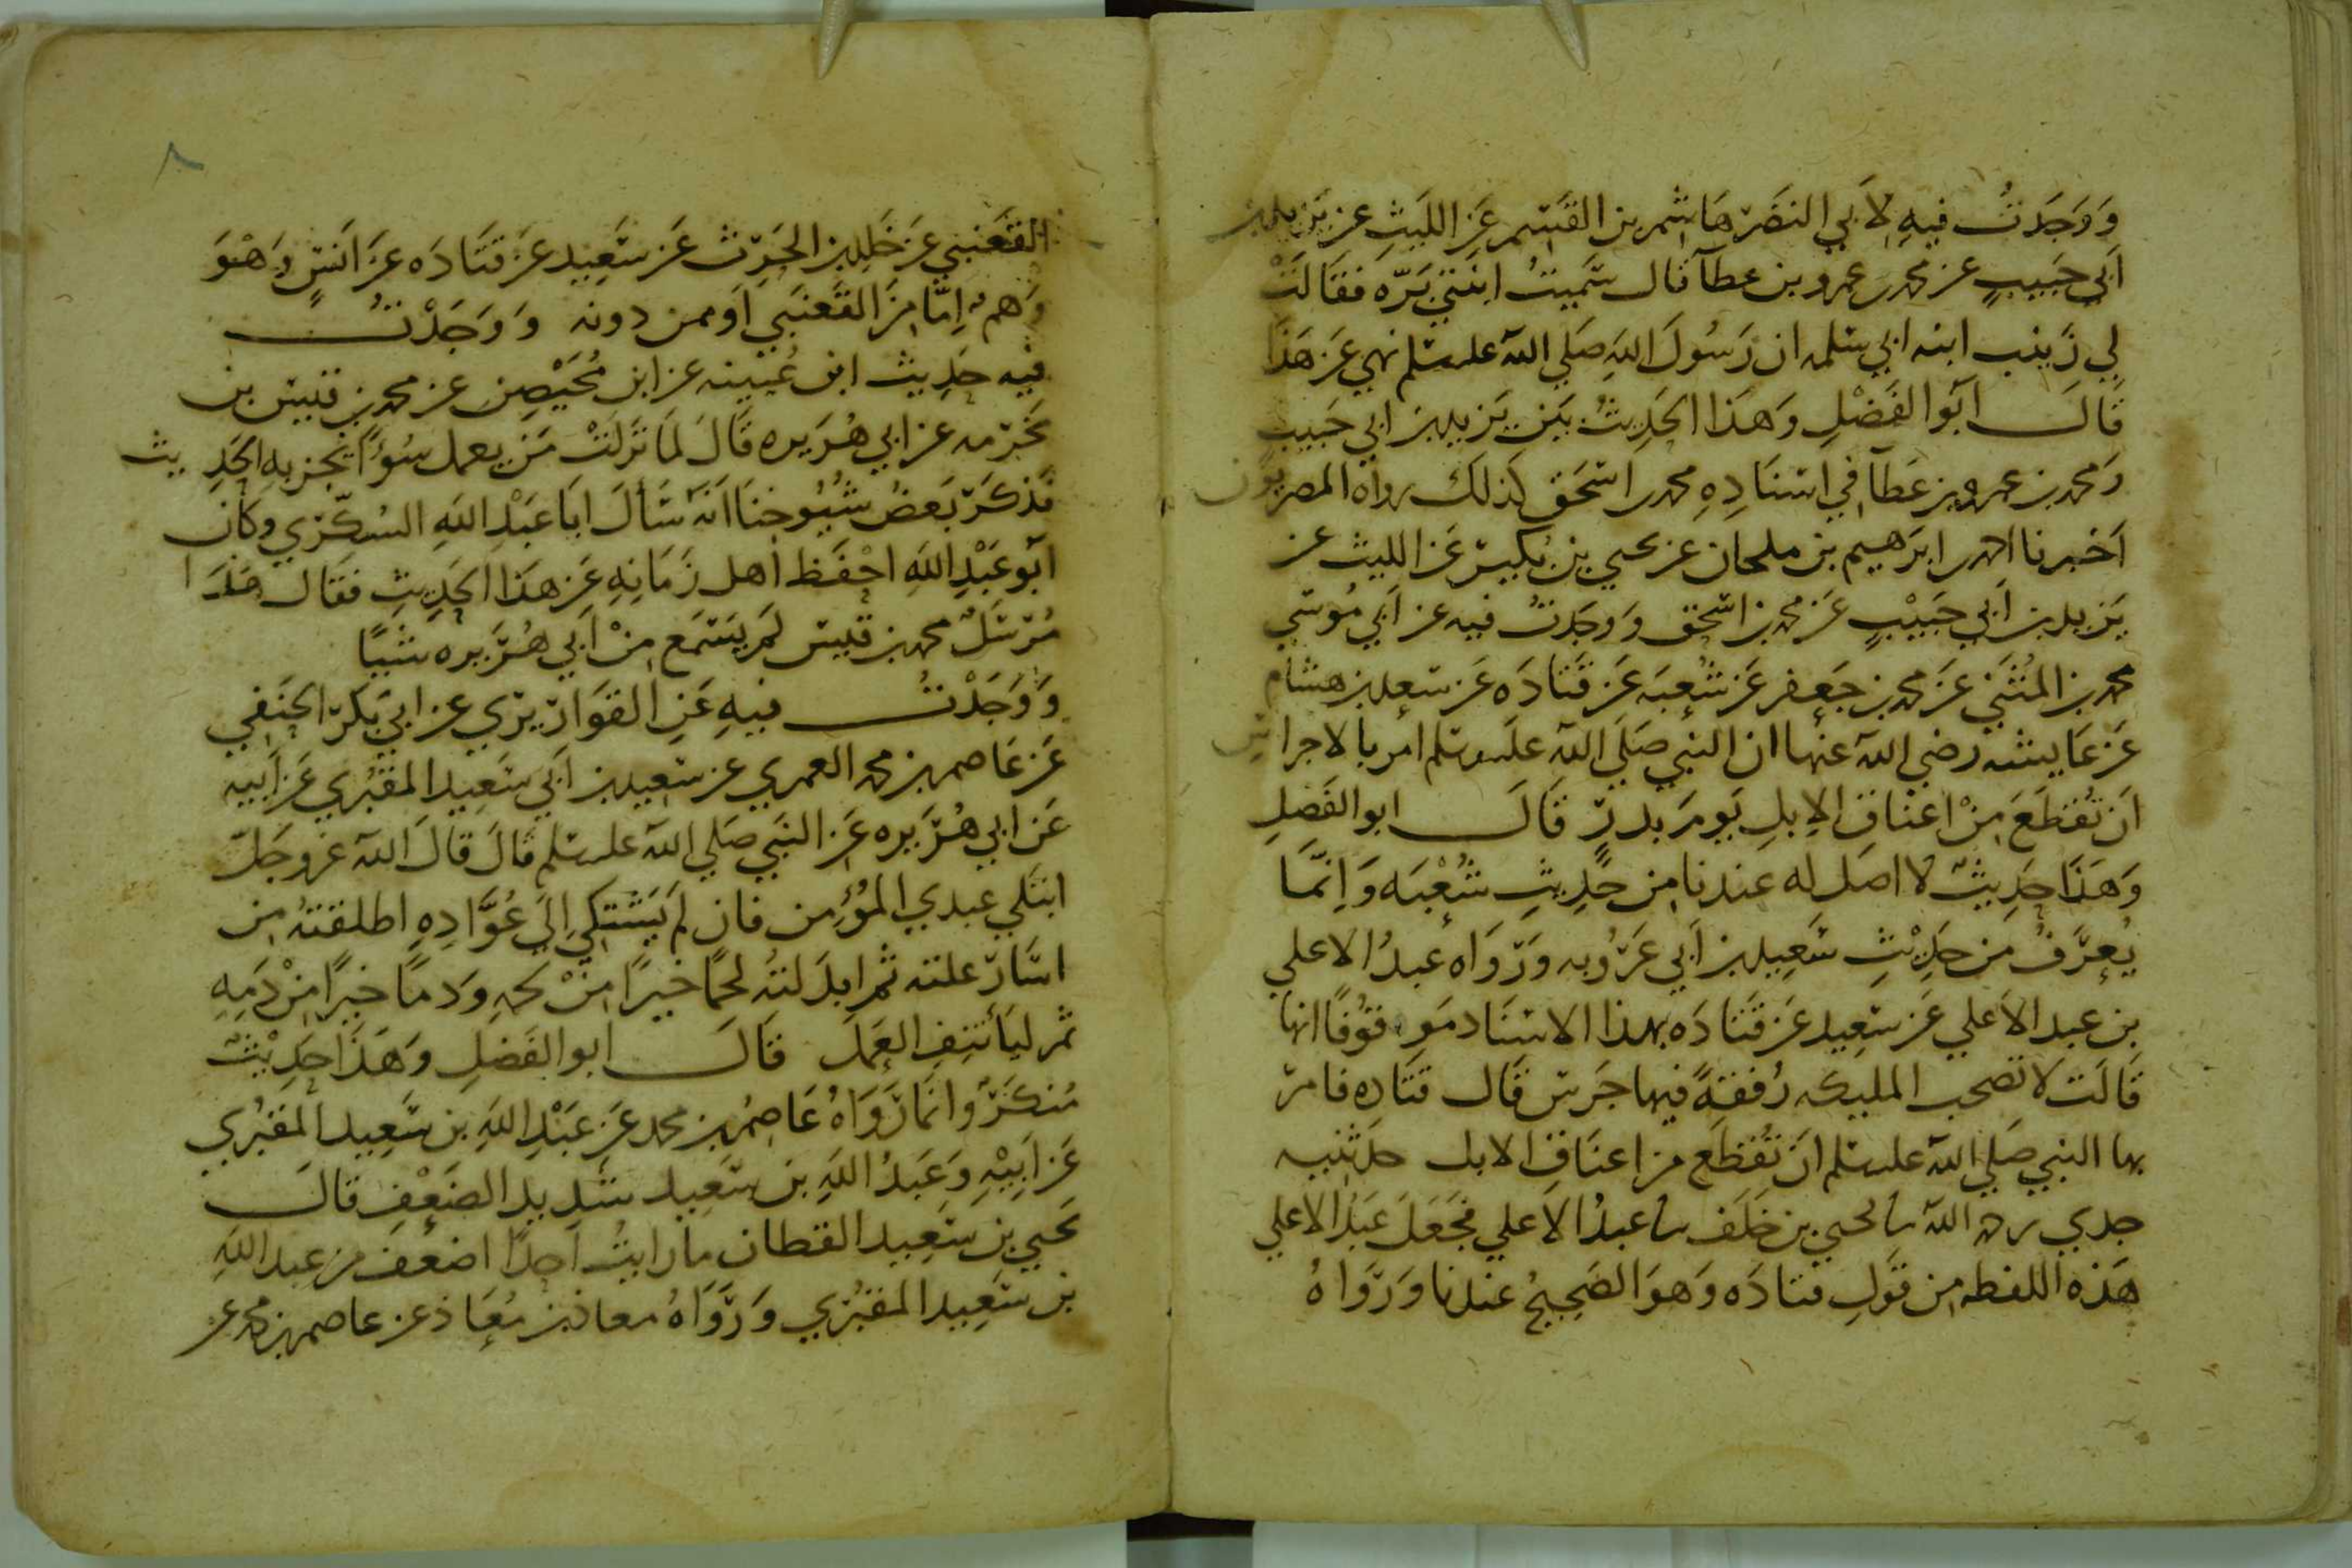 وَوَجَدتُ فيهِ لاَبي النضَر هَاشم بن القَسم عَن الليَثِ عن يَزيد بن
اَبي حَبيبٍ عن محمد بن عمرو بن عطآ قال سَمّيتُ ابنَتي بَرّه فقَالَتْ
لي زَينب ابنه ابي سلمه ان رَسُولَ اللهِ صَلي الله علىه وسلم نهي عَن هَذَا
قَالَ ابَوا الفَضْلِ وَهَذا الحَدِيثُ بَينَ يَزيد بن ابي حَبيب
وَمحمد بن عمرو بن عَطآ في اسنَادِهِ محمد بن اسحَق كذلكَ رواه المصريون
اَخبرنا احمد بن ابرَهيم بن ملحان عن يحيي بن بُكير عَن الليث عن
يَزيد بن اَبي حَبيْبٍ عَن محمد بن اسحق وَوَجَدتُ فيه عن اَبي مُوسَي
محمد بن المُثنَي عَن محمد بن جَعفر عَن شُعبَه عَن قَتَادَه عَن سعد بن هشام
عَن عَايشه رضي الله عنها ان النبي صَلَي الله علَيه وسَلم امر بالاجراس
اَن تُقطَعَ مِنْ اعنَاق الاِبلِ يَومَ بدرٍ قَالَ ابو الفَضلِ
وَهَذَا حَدِيثٌ لا اصَل له عندنا مِن حَدِيثِ شُعْبَه وَاِنّمَا
يُعرَفُ مَن حَدِيْثِ سَعِيد بن اَبي عَرُوبه وَرَوَاه عَبدُ الاعلي
بن عبد الاَعلي عَن سَعِيد عَن قَتَادَه بهذا الاسنَاد مَوقوُفًا انها
قَالَت لاَ تصحب المليكه رُفقةً فيها جَرس قَال قتَاده فامر
بها النبي صَلي الله علىه وسلم اَن تُقطَع من اعنَاقِ الابل حدثنيه
جدي رحمه الله نا يحيي بن خَلَف نا عبدُ الاَعلي فجَعَلَ عَبدُ الاعلي
هَذه اللفظه مِن قَولِ قتادَه وَهوَ الصَحِيحُ عندنا وَرَوَاهُ
٨
القَعنبي عَن خَالد بن الحَرث عَن سَعِيد عَن قتَادَه عَن اَنسٍ وَهْوَ
وَهمٌ اِمّا مِنَ القَعنَبي اَو ممن دونه وَوَجَدْتُ
فيه حَدِيث ابن عُيينه عن ابن مُحَيْصِن عن محمد بن قَيس بن
مَخرَمه عن ابي هُرَيره قَالَ لمَا نَزلَتْ مَن يعمل سُوءًا يُجز به الحَدِيث
فذكَر بَعضُ شيُوخنَا اَنه سَألَ ابَا عَبْدِ اللهِ السُكّري وكَان
ابَو عَبْدِ اللهِ احْفَظ اَهل زَمَانِه عَن هَذا الحَدِيثِ فقَال هَذَا
مُرسَلٌ محمد بن قَيس لَم يَسَمَع مِنْ اَبي هُرَيره شيًا
وَوَجَدْتُ فيهِ عَنِ القوَاريري عن ابي بَكر الحنَفي
عَن عَاصم بن محمد العمري عن سَعِيد بن اَبي سَعِيد المقبُري عَن اَبيه
عَن ابي هُرَيره عَن النبَي صَلي الله علىه وسلم قَالَ قَالَ الله عَز وجَلّ
ابتَلي عبدي المُؤمِن فان لم يَشتكي اِليَ عُوَّادِهِ اطلقتهُ مِن
اسَار علته ثم ابدَلتهُ لحمًا خيرًا مِنْ لحمِه وَدمًا خيرًا مِنْ دَمِهِ
ثم ليَأتنِف العَمَل قَالَ ابو الفَضلِ وَهَذَا حَدِيْثٌ
مُنكَرٌ وَانمَا رَوَاهُ عَاصِمُ بن محمد عَن عَبْدِ اللهِ بن سَعِيد المقبُري
عَن اَبِيْهِ وَعَبدُ اللهِ بن سَعِيد شَدِيد الضَعْفِ قَالَ
يَحيي بن سَعِيد القطان ما رايتُ اَحدًا اضعَف من عبد اللهِ
بن سَعِيد المقبُري وَرَوَاهُ معاذ بن مُعَاذ عن عاصم بن محمد عن